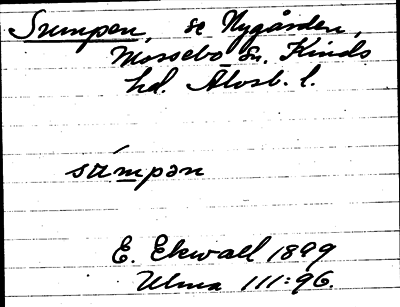 Sumpen, se Nygården,
Mossebo sn. Kinds
hd. Älvsb. l.
súmpən
E. Ekwall 1899
Ulma 111:96.